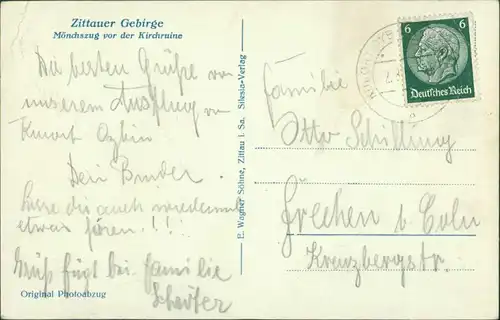 Zittauer Gebirge
Mönchszug vor der Kirchruine
Die besten Grüße von
unserem Ausflug von
Kurort Oybin
Dein Bruder.
Lasse dir auch wiedermal
etwas hören.!!!
Gruß fügt bei Familie
Schäfer
Original Photoabzug
E. Wagner Söhne, Zittau i. Sa. Silesia-Verlag
6 6
Deutsches Reich
Familie
Otto Schilling
Frechen b. Coeln
Kreuzbergstr.